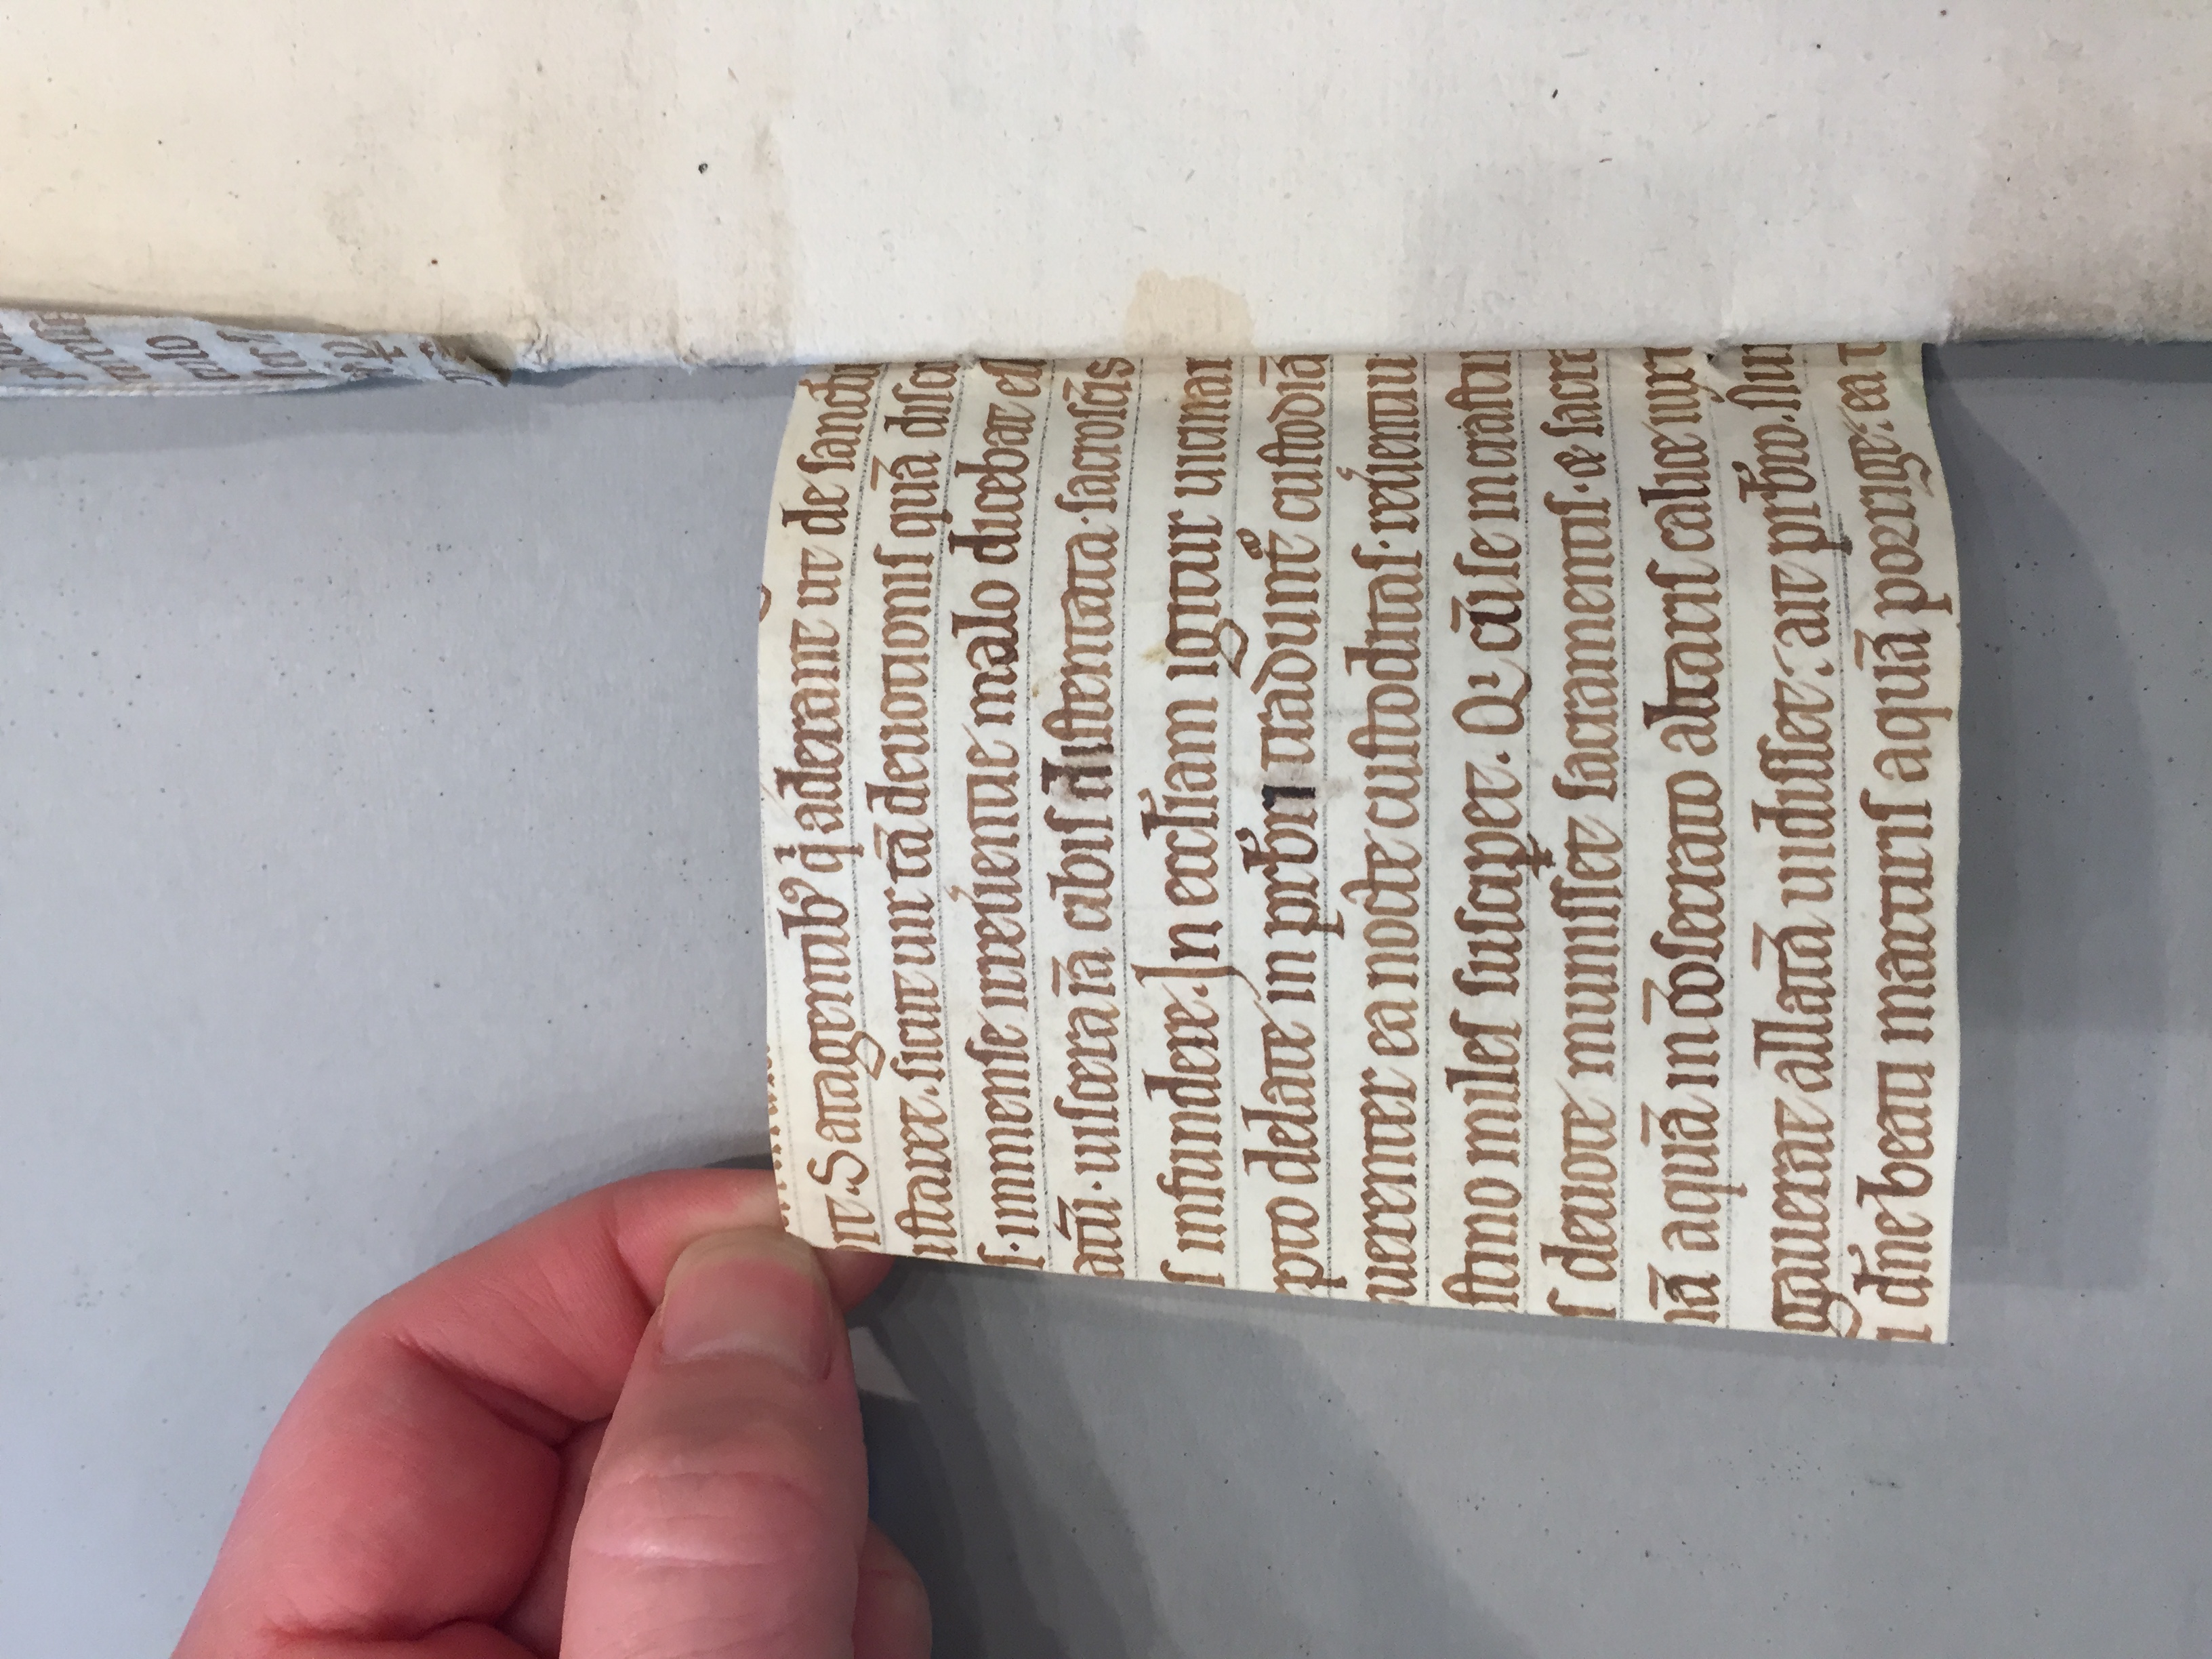 ulo
ıt. Satagentibꝰ q̇ aderant ut de sanctu
ustaret. sicut uir tā deuotionis quā discr
s. immense irreu̓entie malo dicebat es
atū. uiscera iā cibis distentata. sacrosc̄is
s infundere. In eccl̓iam igitur uicinam
pto delate in prb̓ri tradunt᷑ custodiā
uerenter ea nocte custoditas. reu̓entiu
stino miles susciꝑet. Qi cū se in crasti
s deuote munisset sacramentis. & sacra
nā aquā in c̄osecrato altaris calice iuxt
gauerat allatā uidisset: ait prb̓ro. Nu
i dn̓e beati martiris aquā porrige: ea t